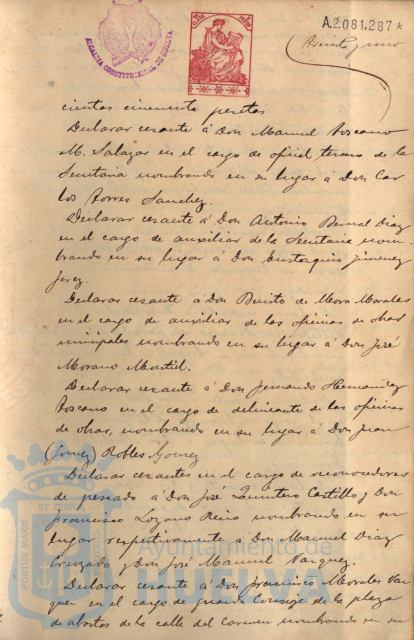 ALCALDIA CONSTITUCIONAL DE HUELVA
A.2.081.287*
cientas cincuenta pesetas
Declarar cesante á Don Manuel Toscano
M. Salazar en el cargo de oficial tercero de la
Secretaria nombrando en su lugar á Don Car
los Torres Sanchez.
Declarar cesante á Don Antonio Bernal Diaz
en el cargo de auxiliar de la Secretaria nom-
brando en su lugar á Don Eustaquio Jimenez
Jerez.
Declarar cesante á Don Benito de Mora Morales
en el cargo de auxiliar de las oficinas de obras
municipales nombrando en su lugar á Don José
Morano Montiel.
Declarar cesante á Don Fernando Hernandez
Toscano en el cargo de delineante de las oficinas
de obras, nombrando en su lugar á Don Juan
(Gomez) Robles Gomez
Declarar cesantes en el cargo de reconocedores
de pescado á Don José Quintero Castillo y Don
Francisco Lozano Reino nombrando en su
lugar respectivamente á Don Manuel Diaz
Cruzado y Don José Manuel Vazquez.
Declarar cesante á Don Francisco Morales Vaz
quez en el cargo de guarda Conserje de la plaza
de abastos de la calle del Carmen nombrando en su
Ayuntamiento de
HUELVA
PORTUS MARIS